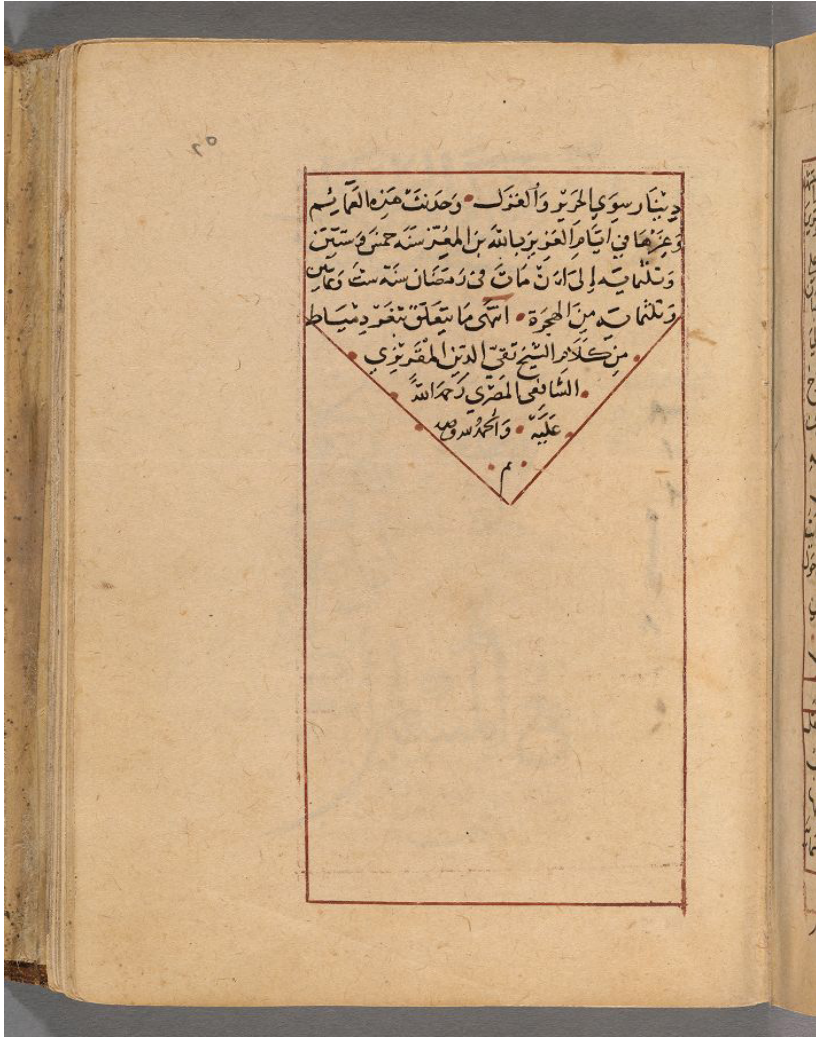 ٢٥
دينار سوى الحرير والغزل وحدثت هذه العمايم
وغيرها في ايام العزيز بالله بن المعز سنه خمس وستين
وثلثماية إلى ان مات في رمضان سنة ست وثمانين
وثلثماية من الهجرة انتهى ما يتعلق بثغر دمياط
من كلام الشيخ تقي الدين المقريزي
الشافعي المصري رحمة الله
عليه والحمد لله وحده
م